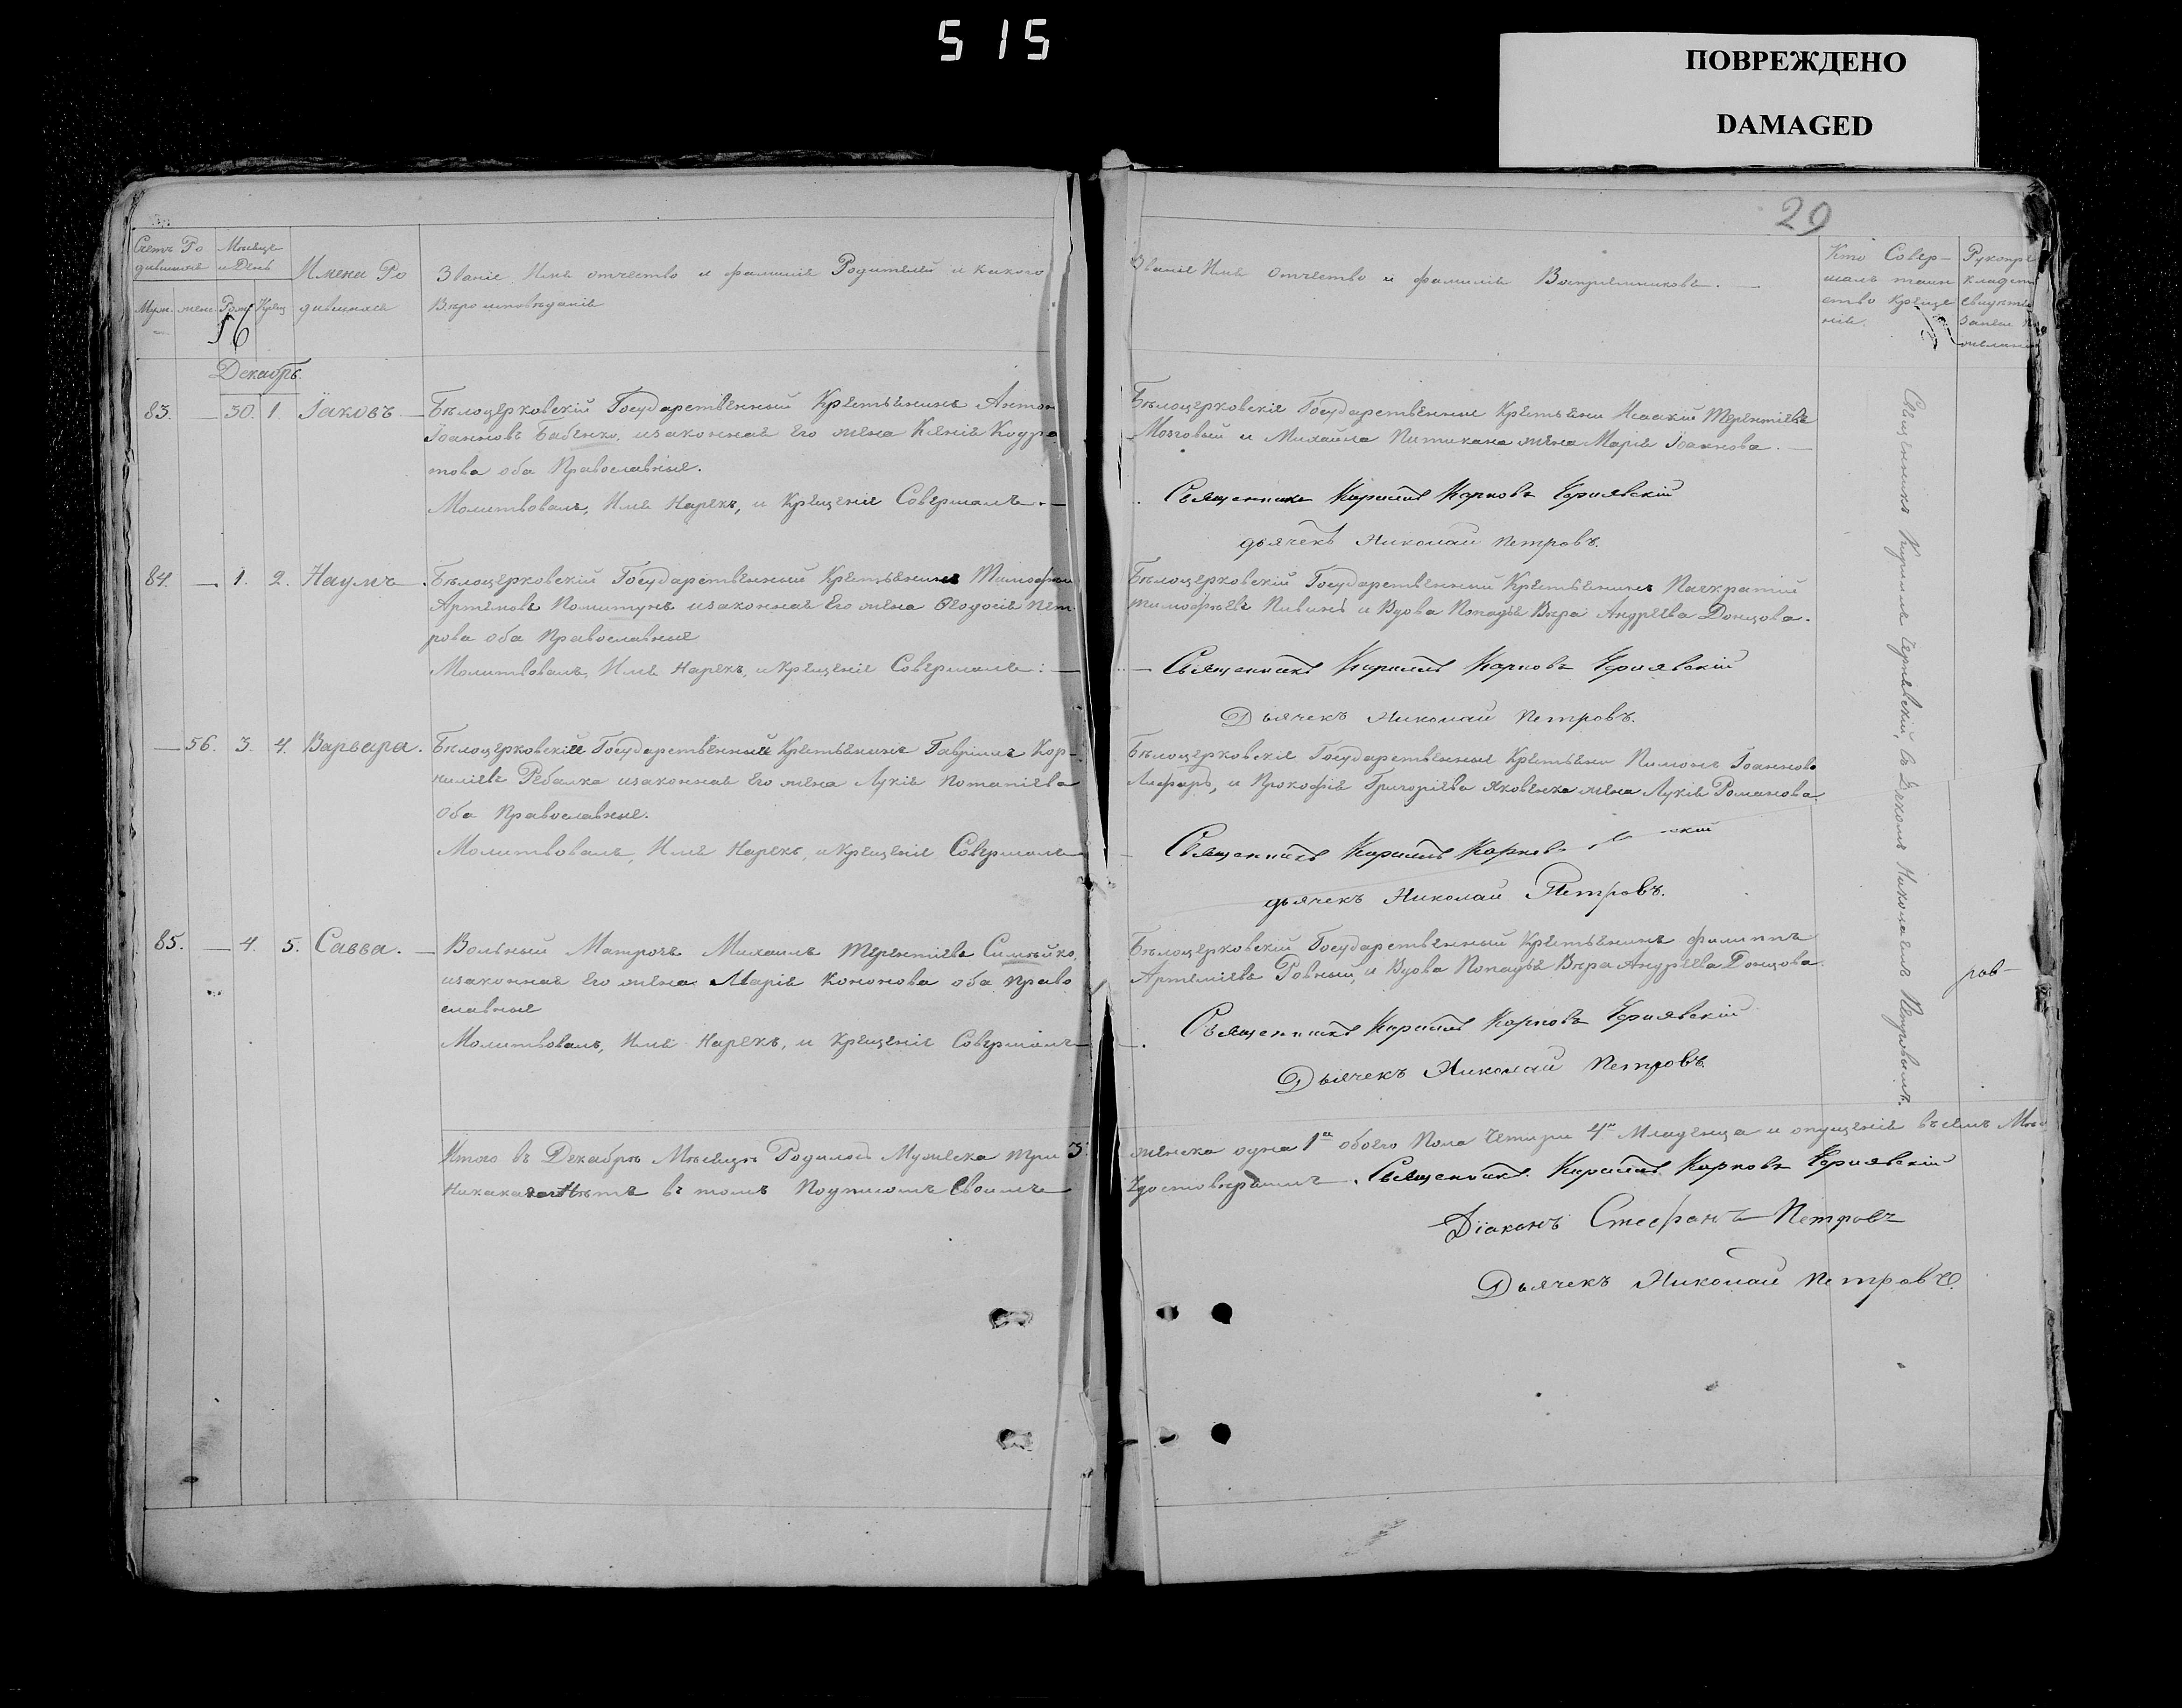 515
ПОВРЕЖДЕНО
DAMAGED
29
Счетъ Ро
дившихся
Мѣсяцъ
и День
Имена Ро
дившихся
Званіе Имя отчество и фамилія Родителей и какого
Вѣроисповѣданія
Муж. жен. Рож. Крещ
56
Званіе Имя отчество и фамилія Воспріемниковъ.
Кто Совер-
шалъ таин
ство Креще
нія.
Рукопри
кладст
Свидѣте
записи
желан
Декабрь.
83. — 30. 1. Іаковъ — Бѣлоцерковскій Государственный Крестьянинъ Антон
Іоанновъ Бабенко, изаконная его жена Ксенія Кодра
това оба Православные.
Молитвовалъ, Имя Нарекъ, и Крещеніе Совершалъ. —
Бѣлоцерковскіе Государственные Крестьяни Исаакій Терентіевъ
Мозговый и Михаила Питикана жена Марія Іоаннова. —
Священникъ Кириллъ Карповъ Чернявскій
дьячекъ Николай Петровъ.
84. — 1. 2. Наумъ — Бѣлоцерковскій Государственный Крестьянинъ Тимофей
Артемовъ Политунъ изаконная Его жена Феодосія Пет
рова оба Православные
Молитвовалъ, Имя Нарекъ, и Крещеніе Совершалъ: —
Бѣлоцерковскій Государственный Крестьянинъ Панкратій
Тимофѣевъ Пивинъ и Вдова Попадья Вѣра Андреева Донцова.
— Священникъ Кириллъ Карповъ Чернявскій
Дьячекъ Николай Петровъ.
— 56. 3. 4. Варвара. Бѣлоцерковскій Государственный Крестьянинъ Гавріилъ Кор-
ниліевъ Рѣбалка изаконная Его жена Лукія Потапіева
Оба Православные.
Молитвовалъ, Имя Нарекъ, и Крещеніе Совершалъ
Бѣлоцерковскіе Государственные Крестьяни Пимонъ Іоанновъ
Лифарь, и Прокофія Григоріева Яковенка жена Лукія Романова.
Священникъ Кириллъ Карповъ
дьячекъ Николай Петровъ.
85. — 4. 5. Савва. — Вольный Матрозъ Михаилъ Терентіевъ Симѣйко,
изаконная Его жена Марія Кононова оба Право
славные
Молитвовалъ, Имя Нарекъ, и Крещеніе Совершалъ —
Бѣлоцерковскій Государственный Крестьянинъ Филиппъ
Артеміевъ Ровный, и Вдова Попадья Вѣра Андреева Донцова.
Священникъ Кириллъ Карповъ Чернявскій
Дьячекъ Николай Петровъ.
Священникъ Кириллъ Чернявскій, съ Дьякомъ Николаемъ Петровымъ.
Итого въ Декабрѣ Мѣсяцѣ Родилось Мужеска три 3.
женска одна 1а обоего Пола Четыри 4ре Младенца и опущенія въ семъ
Нѣтъ въ томъ Подписомъ Своимъ
Удостовѣряемъ. Священникъ. Кириллъ Карповъ Чернявскій
Діаконъ Стефанъ Петровъ
Дьячекъ Николай Петровъ.